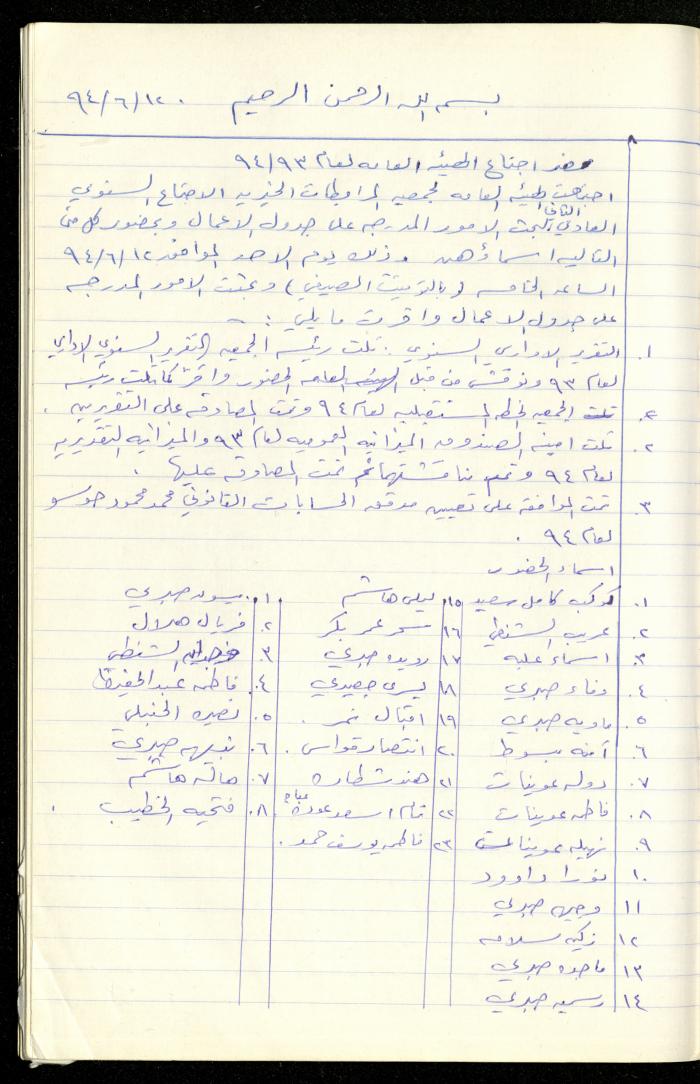 بسم الله الرحمن الرحيم ٩٤/٦/١٢
محضر اجتماع الهيئه العامه لعام ٩٤/٩٣
اجتمعت الهيئه العامه لجمعيه المرابطات الخيريه الاجتماع السنوي
العادي الثاني لبحث الامور المدرجه على جدول الاعمال وبحضور كل من
التاليه اسماؤهن وذلك يوم الاحد الموافق ٩٤/٦/١٢
الساعه الخامسه (بالتوقيت الصيفي) وبحثت الامور المدرجه
على جدول الاعمال واقرت ما يلي :-
١. التقرير الاداري السنوي : تلت رئيسه الجمعيه التقرير السنوي الاداري
لعام ٩٣ ونوقش من قبل الهيئه العامه الحضور واقر كما تلت رئيسه
الجمعيه الخطه المستقبليه لعام ٩٤ وتمت المصادقه على التقريرين .
٢. تلت امينه الصندوق الميزانيه العموميه لعام ٩٣ والميزانيه التقديريه
لعام ٩٤ وتم مناقشتهما ثم تمت المصادقه عليها .
٣. تمت الموافقه على تعيين مدقق الحسابات القانوني محمد محمود حوسو
لعام ٩٤ .
اسماء الحضور
١. كوكب كامل سعيد
٢. عريب الشنطي
٣. اسماء علبه
٤. وفاء صبري
٥. ماويه صبري
٦. آمنه بسوط
٧. دوله عوينات
٨. فاطمه عوينات
٩. نهيله عوينات
١٠. نورا داوود
١١ وجيه صبري
١٢ زكيه سلامه
١٣ ماجده صبري
١٤ رسميه صبري
١٥. ليلى هاشم
١٦ سحر عمر بكر
١٧ رويده صبري
١٨ يسرى جعيدي
١٩ اقبال نمر .
٢٠ انتصار قواس .
٢١ هند شطاره
٢٢ تمام اسعد عوده
٢٣ فاطمه يوسف حمد .
١. ميسون صبري
٢. فريال هلال
٣. الشنطي
٤. فاطمه عبد الحفيظ
٥. نصيره الحنبلي
٦. نبيهه صبري
٧. هاله هاشم
٨. فتحيه الخطيب .